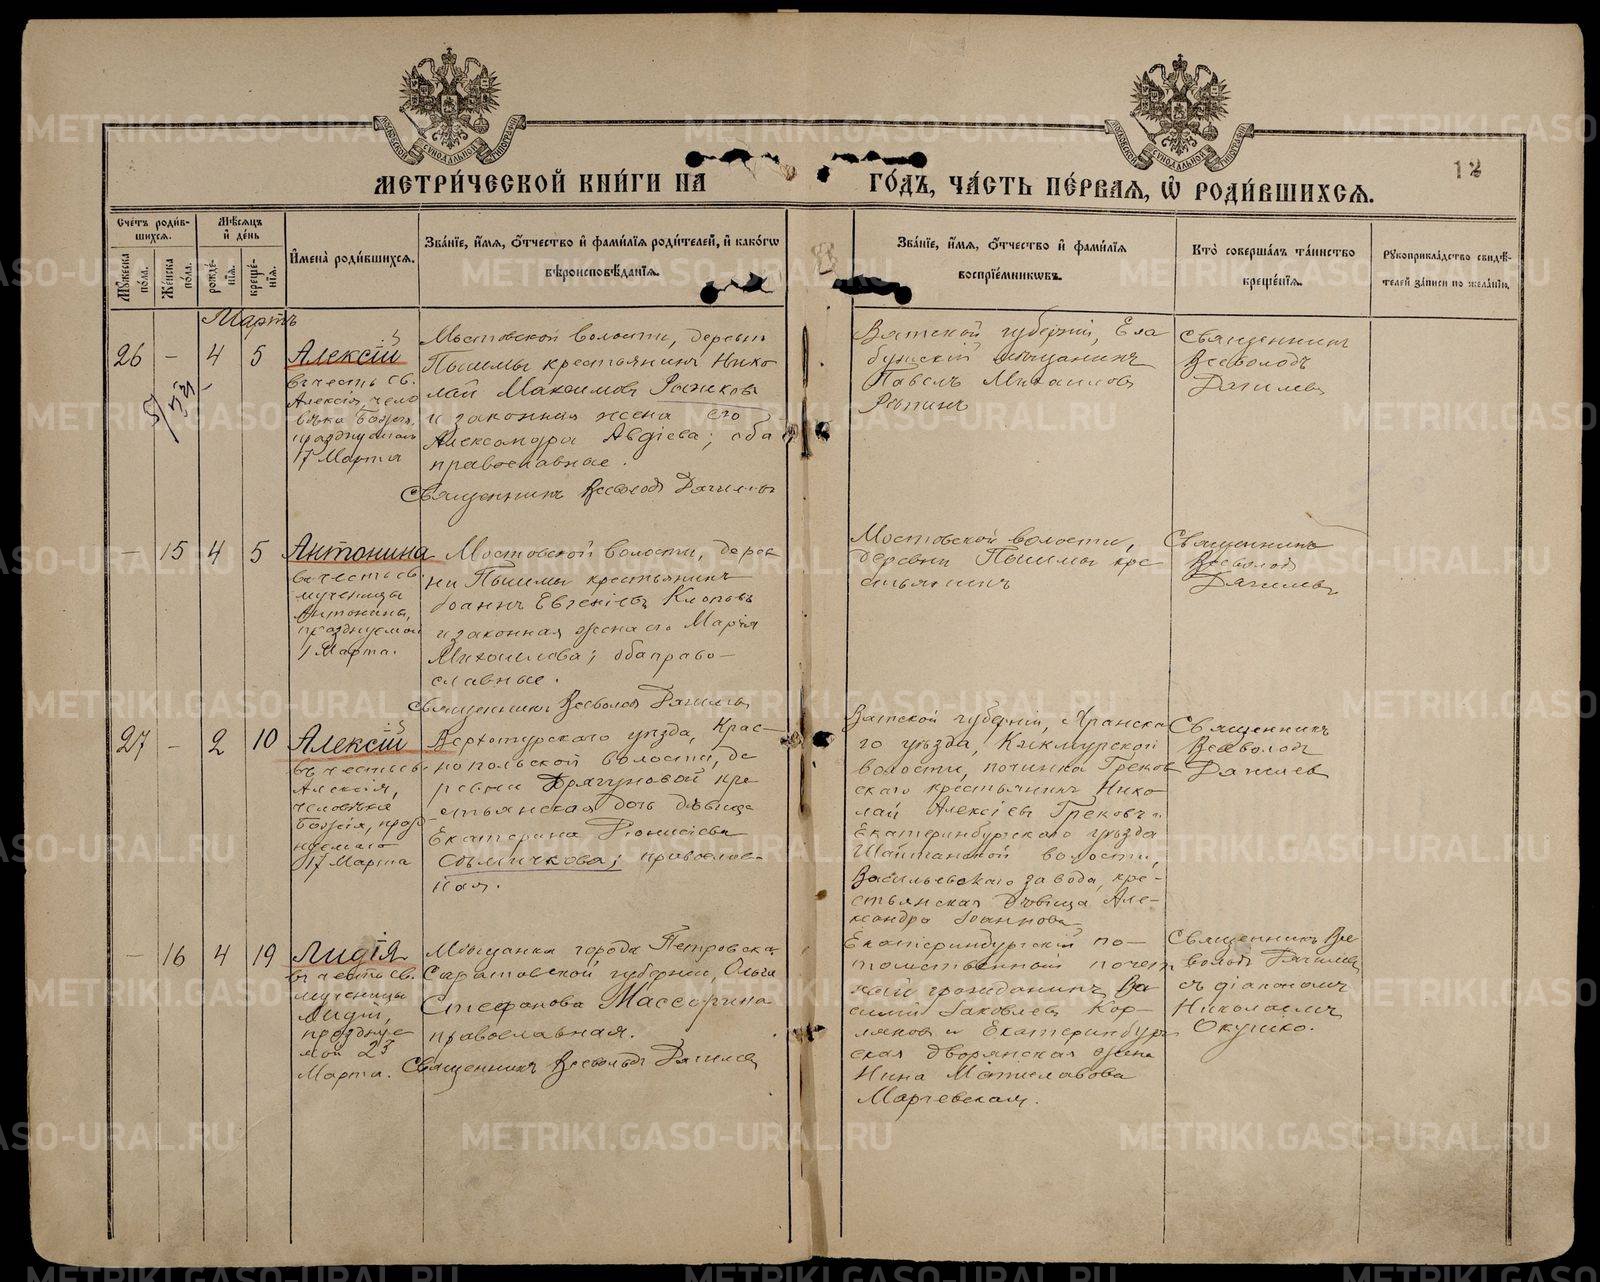 METRIKI.GASO-URAL.RU
МОСКОВСКОЙ СѴНОДАЛЬНОЙ ТИПОГРАФІИ
МОСКОВСКОЙ СѴНОДАЛЬНОЙ ТИПОГРАФІИ
МЕТРИ́ЧЕСКОЙ КНИ́ГИ НА
ГО́ДЪ, ЧА́СТЬ ПЕ́РВАЯ, Ѡ РОДИ́ВШИХСЯ.
12
Сче́тъ роди́в-
шихся.
Мꙋ́жеска по́ла.
Же́нска по́ла.
Мѣ́сяцъ
и҆ де́нь
рожде́-
нїѧ.
креще́-
нїѧ.
И҆мена̀ роди́вшихсѧ.
Зва́нїе, и҆́мѧ, ѻ҆́тчество и҆ фами́лїѧ роди́телей, и҆ како́гѡ
вѣроисповѣ́данїѧ.
Зва́нїе, и҆́мѧ, ѻ҆́тчество и҆ фами́лїѧ
воспрїе́мникѡвъ.
Кто̀ соверша́лъ та́инство
креще́нїѧ.
Рꙋкоприкла́дство свидѣ́-
телей за́писи по жела́нїю.
Мартъ
26
-
4
5
Алексій
въ честь св.
Алексія, чело
вѣка Божія,
празднуемаго
17 Марта
Мостовской волости, деревни
Пышмы крестьянинъ Нико
лай Максимовъ Рожковъ
и законная жена его
Александра Авдіева; оба
православные.
Священникъ Всеволодъ
Вятской губерніи, Ела
бужскій мѣщанинъ
Павелъ Михаиловъ
Рѣпинъ
Священникъ
Всеволодъ
-
15
4
5
Антонина
въ честь св.
мученицы
Антонины,
празднуемой
1 Марта.
Мостовской волости, дерев
ни Пышмы крестьянинъ
Іоаннъ Евгеніевъ Клоповъ
и законная жена его Марія
Михаилова; оба право-
славные.
Священникъ Всеволодъ
Мостовской волости,
деревни Пышмы кре
стьянинъ
Священникъ
Всеволодъ
27
-
2
10
Алексій
въ честь св.
Алексія,
человѣка
Божія, празд
нуемаго
17 Марта
Верхотурскаго уѣзда, Крас-
нопольской волости, де
ревни кре
стьянская дочь дѣвица
Екатерина Діонисіева
православ-
ная.
Вятской губерніи, Яранска
го уѣзда, Кикмурской
волости, починка Греков
скаго крестьянинъ Нико-
лай Алексіевъ Грековъ и
Екатеринбургскаго уѣзда
Шайтанской волости,
Васильевскаго завода, кре-
стьянская дѣвица Але-
ксандра Іоаннова
Священникъ
Всеволодъ
-
16
4
19
Лидія
въ честь св.
мученицы
Лидіи,
празднуе
мой 23
Марта.
Мѣщанка города Петровска
Саратовской губерніи, Ольга
Стефанова
православная.
Священникъ Всеволодъ
Екатеринбургскій по-
томственный почет
ный гражданинъ Ва
силій Іаковлевъ
и Екатеринбург
ская дворянская жена
Нина Мстиславова
Священникъ Все
володъ
съ діакономъ
Николаемъ